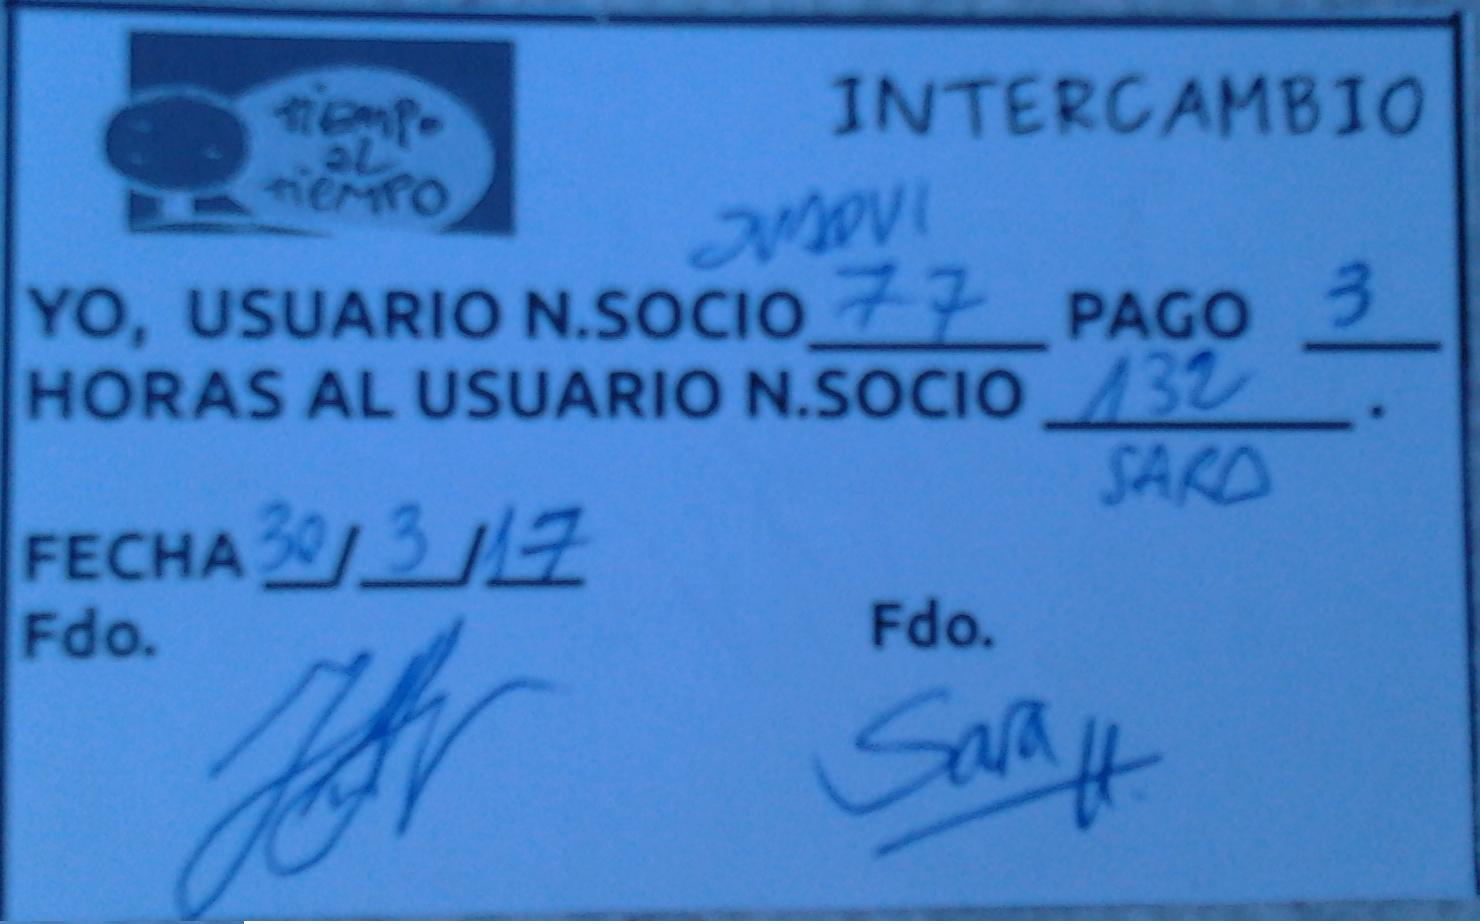 tiempo
al
tiempo
INTERCAMBIO
YO, USUARIO N.SOCIO 77 PAGO 3
HORAS AL USUARIO N.SOCIO 132.
SARA
FECHA 30/3/17
Fdo. Fdo.
Sara H.